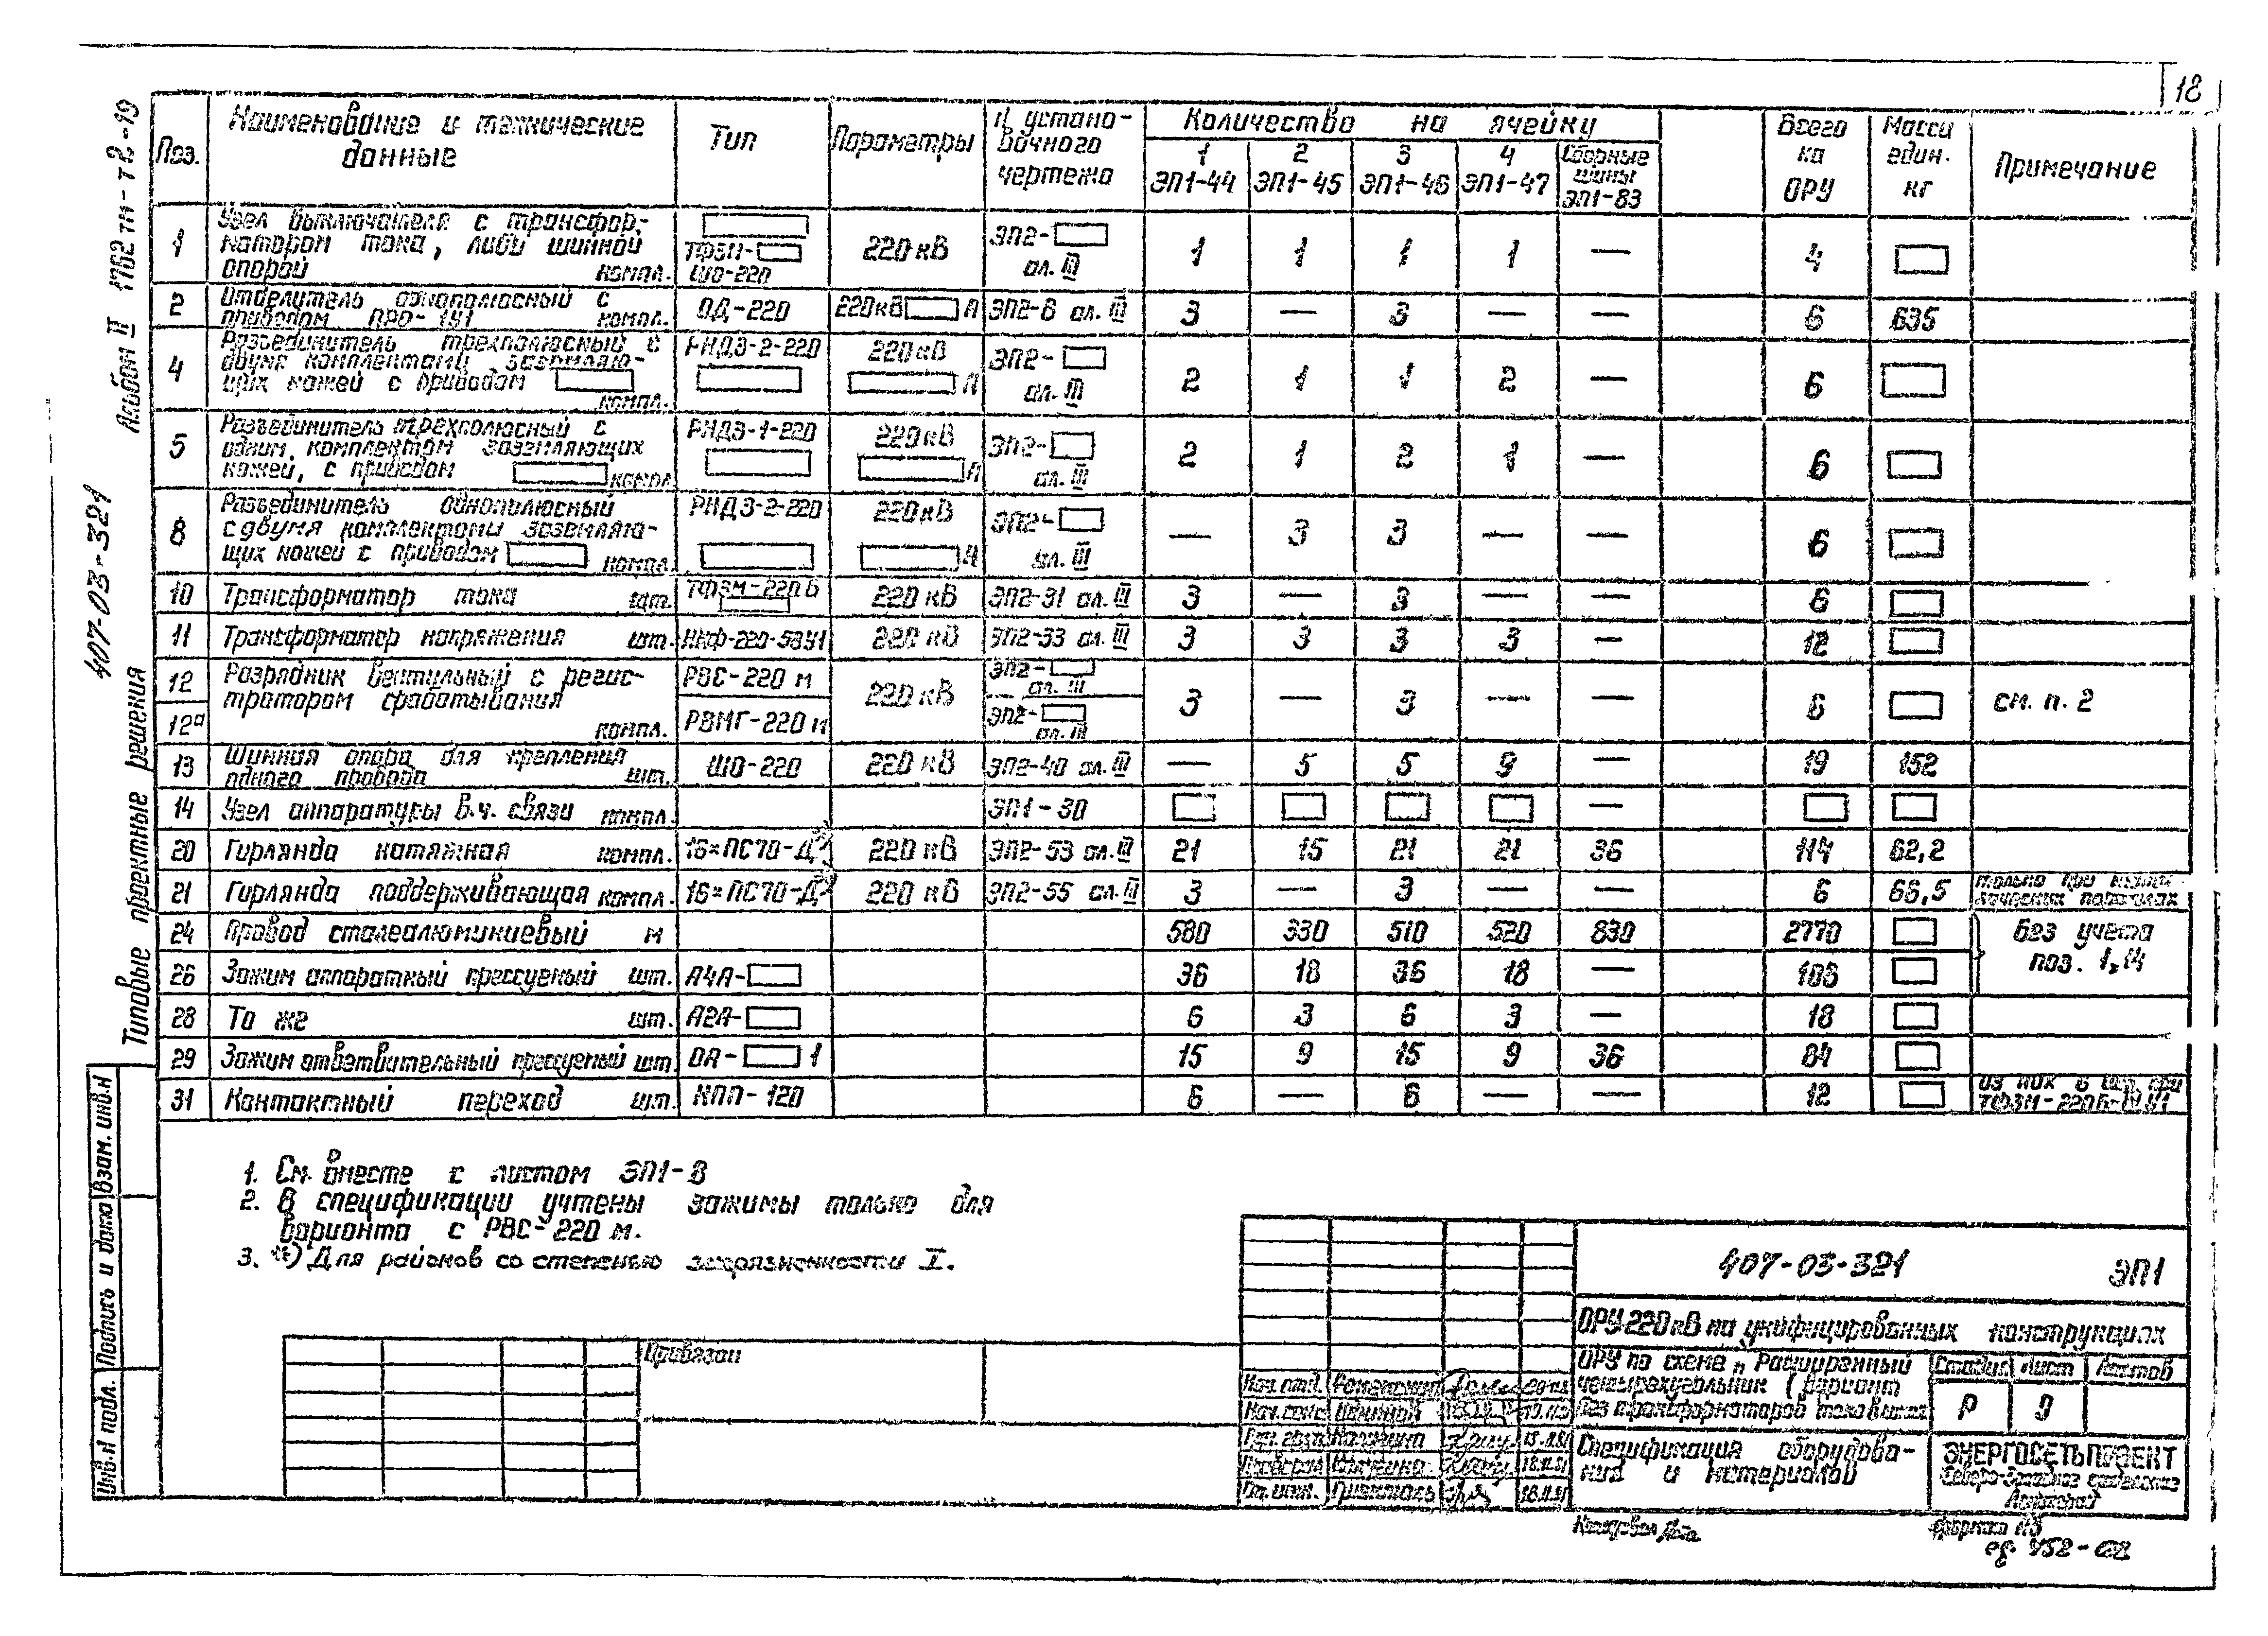 18
Альбом II 1762 тм-т2-19
407-03-321
Типовые проектные решения
Поз. Наименование и технические данные Тип Параметры N установочного чертежа Количество на ячейку Всего на ОРУ Масса един. кг Примечание
1 ЭП1-44 2 ЭП1-45 3 ЭП1-46 4 ЭП1-47 Сборные шины ЭП1-83
1 Узел выключателя с трансфор- 220 кВ ЭП2- 1 1 1 1 — 4
матором тока, либо шинной ТФЗМ- ал. III
опорой компл. ШО-220
2 Отделитель однополюсный с ОД-220 220кВ А ЭП2-8 ал. III 3 — 3 — — 6 635
приводом ПРО-1У1 компл.
4 Разъединитель трехполюсный с РНДЗ-2-220 220 кВ ЭП2- 2 1 1 2 — 6
двумя комплектами заземляю- А ал. III
щих ножей с приводом компл.
5 Разъединитель трехполюсный с РНДЗ-1-220 220 кВ ЭП2- 2 1 2 1 — 6
одним комплектом заземляющих А ал. III
ножей, с приводом компл
8 Разъединитель однополюсный РНДЗ-2-220 220кВ ЭП2- — 3 3 — — 6
с двумя комплектами заземляю- А ал. III
щих ножей с приводом компл.
10 Трансформатор тока шт. ТФЗМ-220Б 220 кВ ЭП2-31 ал. III 3 — 3 — — 6
11 Трансформатор напряжения шт. НКФ-220-58У1 220 кВ ЭП2-33 ал. III 3 3 3 3 — 12
12 Разрядник вентильный с регис- РВС-220 м 220 кВ ЭП2- ал. III 3 — 3 — — 6 см. п. 2
12а тратором срабатывания компл. РВМГ-220 м ЭП2- ал. III
13 Шинная опора для крепления ШО-220 220 кВ ЭП2-40 ал. III — 5 5 9 — 19 152
одного провода шт.
14 Узел аппаратуры в.ч. связи компл. ЭП1-30 —
20 Гирлянда натяжная компл. 16×ПС70-Д*) 220 кВ ЭП2-53 ал. III 21 15 21 21 36 114 62,2
21 Гирлянда поддерживающая компл. 16×ПС70-Д*) 220 кВ ЭП2-55 ал. III 3 — 3 — — 6 66,5 только при
24 Провод сталеалюминиевый м 580 330 510 520 830 2770 без учета
26 Зажим аппаратный прессуемый шт. А4А- 36 18 36 18 — 108 поз. 1,14
28 То же шт. А2А- 6 3 6 3 — 18
29 Зажим ответвительный прессуемый шт. ОА- 1 15 9 15 9 36 84
31 Контактный переход шт. КПП-120 6 — 6 — — 12 из них 6 шт. при
ТФЗМ-220Б-III У1
1. См. вместе с листом ЭП1-8
2. В спецификации учтены зажимы только для
варианта с РВС-220 м.
3. *) Для районов со степенью загрязненности I.
Взам. инв.N
Подпись и дата
Инв.N подл.
Привязан
407-03-321 ЭП1
ОРУ 220 кВ на унифицированных конструкциях
ОРУ по схеме „Расширенный
четырехугольник (вариант
без трансформаторов тока
Стадия Лист Листов
Р 9
Спецификация оборудова-
ния и материалов
ЭНЕРГОСЕТЬПРОЕКТ
Северо-Западное отделение
Ленинград
Нач. отд.
Проверил 18.11.81
Ст. инж. 18.11.81
Копировал
Формат А3